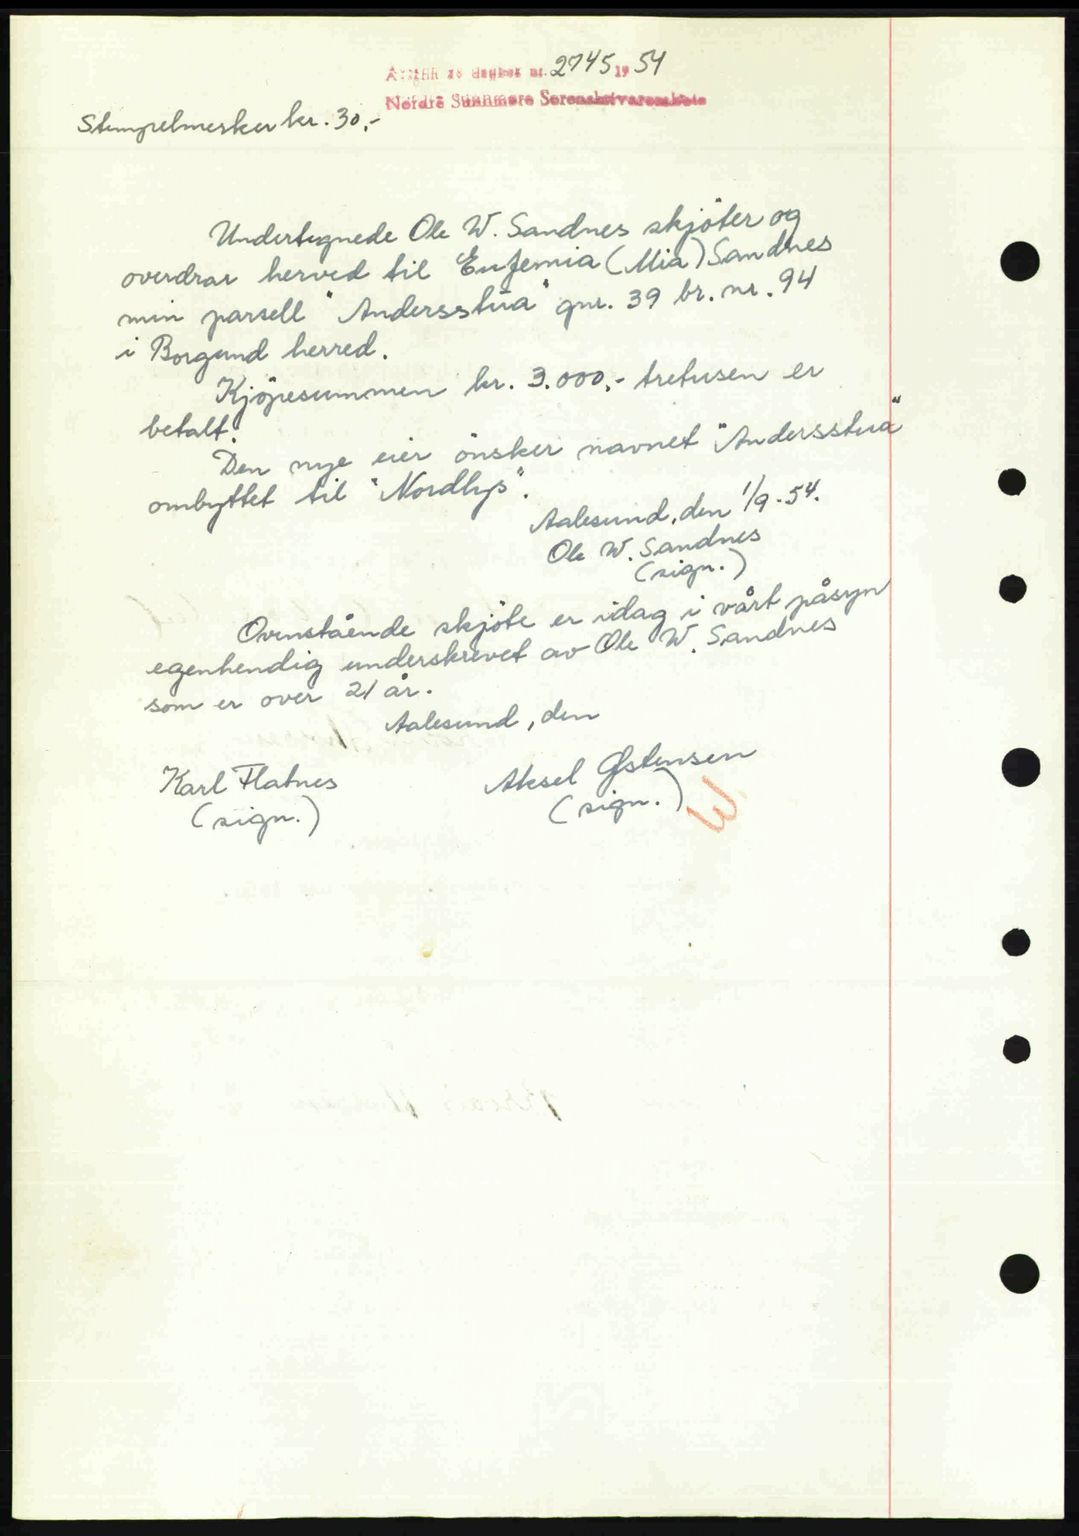 dagbok nr. 2745 1954
Nordre Sunnmøre Sorenskriverembete
Stempelmerker kr. 30,-
Undertegnede Ole W. Sandnes skjöter og
overdrar herved til Eufemia (Mia) Sandnes
min parsell "Andersstua" gnr. 39 br. nr. 94
i Borgund herred.
Kjöpesummen kr. 3.000,- tretusen er
betalt.
Den nye eier önsker navnet "Andersstua"
ombyttet til "Nordlys".
Aalesund, den 1/9-54.
Ole W. Sandnes
(sign.)
Ovenstående skjöte er idag i vårt påsyn
egenhendig underskrevet av Ole W. Sandnes
som er over 21 år.
Aalesund, den
Karl Flatnes Aksel Østensen
(sign.) (sign.)